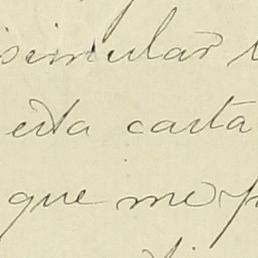 simular
esta carta
que me